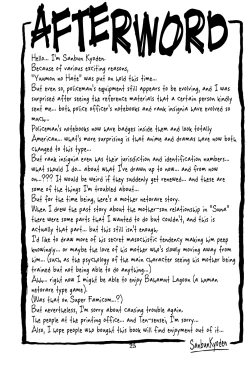 AFTERWORD
Hello... I'm Sanbun Kyoden.
Because of various exciting reasons,
"Yuumon no Hate" was put on hold this time...
But even so, policeman's equipment still appears to be evolving, and I was
surprised after seeing the reference materials that a certain person kindly
sent me... both police officer's notebooks and rank insignia have evolved so
much...
Policeman's notebooks now have badges inside them and look totally
American... what's more surprising is that anime and dramas have now both
changed to this type...
But rank insignia even has their jurisdiction and identification numbers...
what should I do... about what I've drawn up to now... and from now
on...??? It would be weird if they suddenly get renewed... and these are
some of the things I'm troubled about...
But for the time being, here's a mother netorare story.
When I drew the past story about the mother-son relationship in "Sana"
there were some parts that I wanted to do but couldn't, and this is
actually that part... but this still isn't enough.
I'd like to draw more of his secret masochistic tendency making him peep
knowingly... or maybe the love of his mother who's slowly moving away from
him... (such as the psychology of the main character seeing his mother being
trained but not being able to do anything...)
Ahh... right now I might be able to enjoy Bahamut Lagoon (a human
netorare game).
(Was that on Super Famicom...?)
But nevertheless, I'm sorry about causing trouble again.
The people at the printing office... and Ten-sensei, I'm sorry...
Also, I hope people who bought this book will find enjoyment out of it...
SanbunKyoden
25